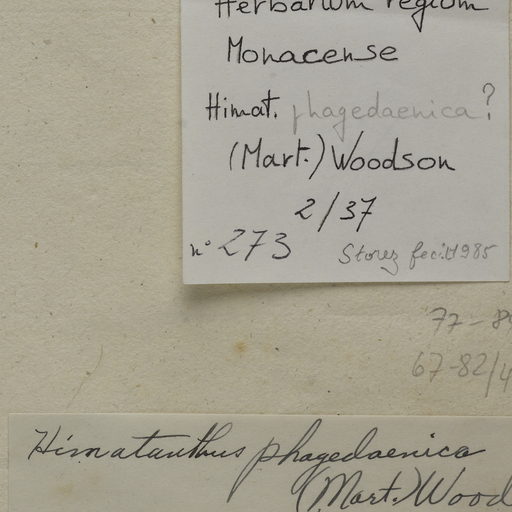 Herbarium regium
Monacense
Himat. phagedaenica?
(Mart.) Woodson
2/37
n° 273
Storez fecit 1985
77-8
67-82/4
Himatanthus phagedaenica
(Mart.) Wood